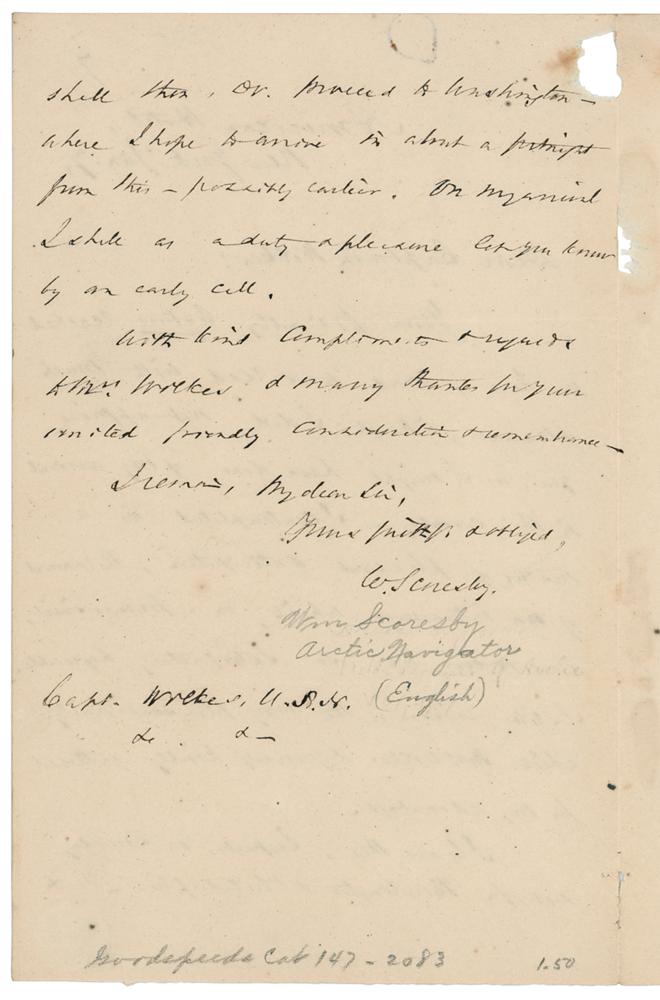 shall then, DV. proceed to Washington –
where I hope to arrive in about a fortnight
from this – possibly earlier. On my arrival
I shall as a duty & pleasure let you know
by an early call.
With kind Compliments & regards
to Mrs. Wilkes & many thanks for your
united friendly consideration & remembrance –
I remain, My dear Sir,
Yours faithfy & obliged,
W. Scoresby.
Wm Scoresby
Arctic Navigator
(English)
Capt. Wilkes, U.S.N.
&c &c
Goodspeeds Cat 147 – 2083 1.50